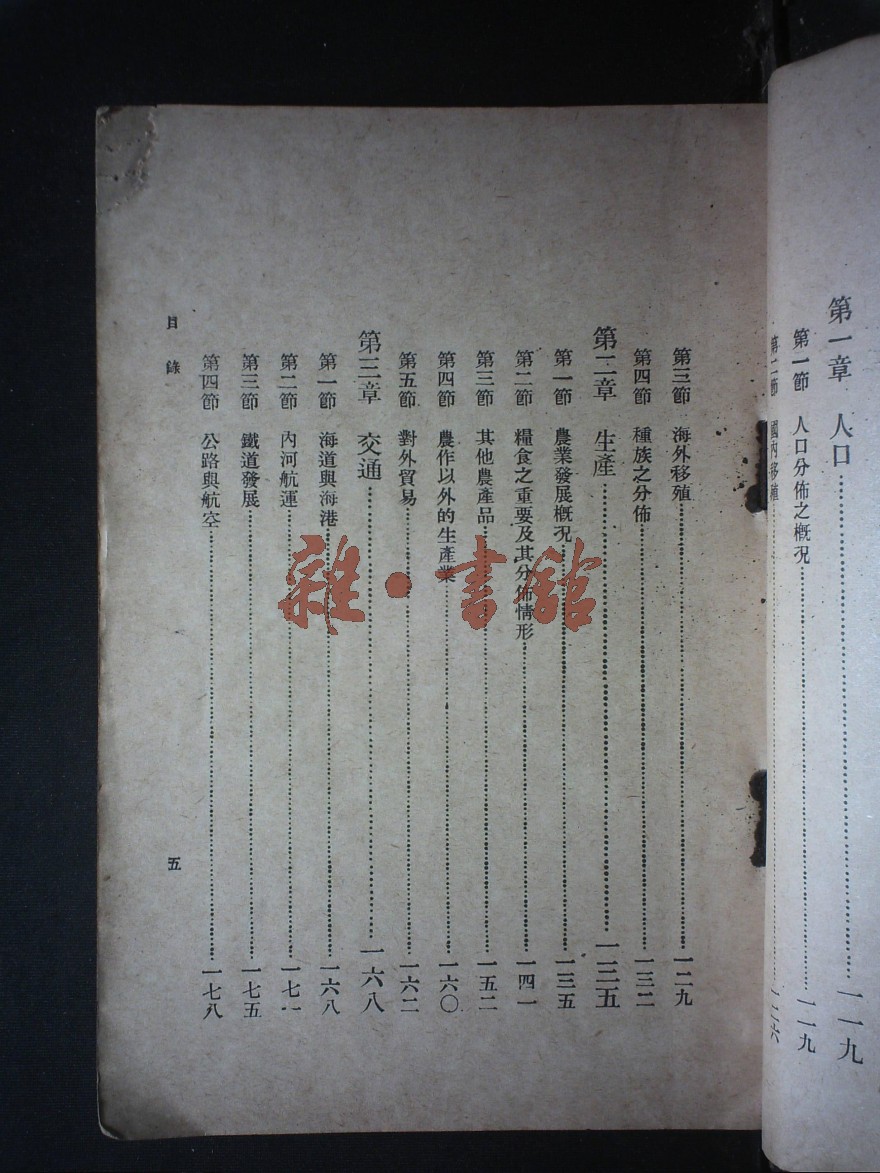 第一章 人口……一一九
第一節 人口分佈之概況……一一九
第二節 國內移殖……一二六
第三節 海外移殖……一二九
第四節 種族之分佈……一三二
第二章 生產……一三五
第一節 農業發展概況……一三五
第二節 糧食之重要及其分佈情形……一四一
第三節 其他農產品……一五二
第四節 農作以外的生產業……一六〇
第五節 對外貿易……一六二
第三章 交通……一六八
第一節 海道與海港……一六八
第二節 內河航運……一七一
第三節 鐵道發展……一七五
第四節 公路與航空……一七八
目錄
五
雜·書館